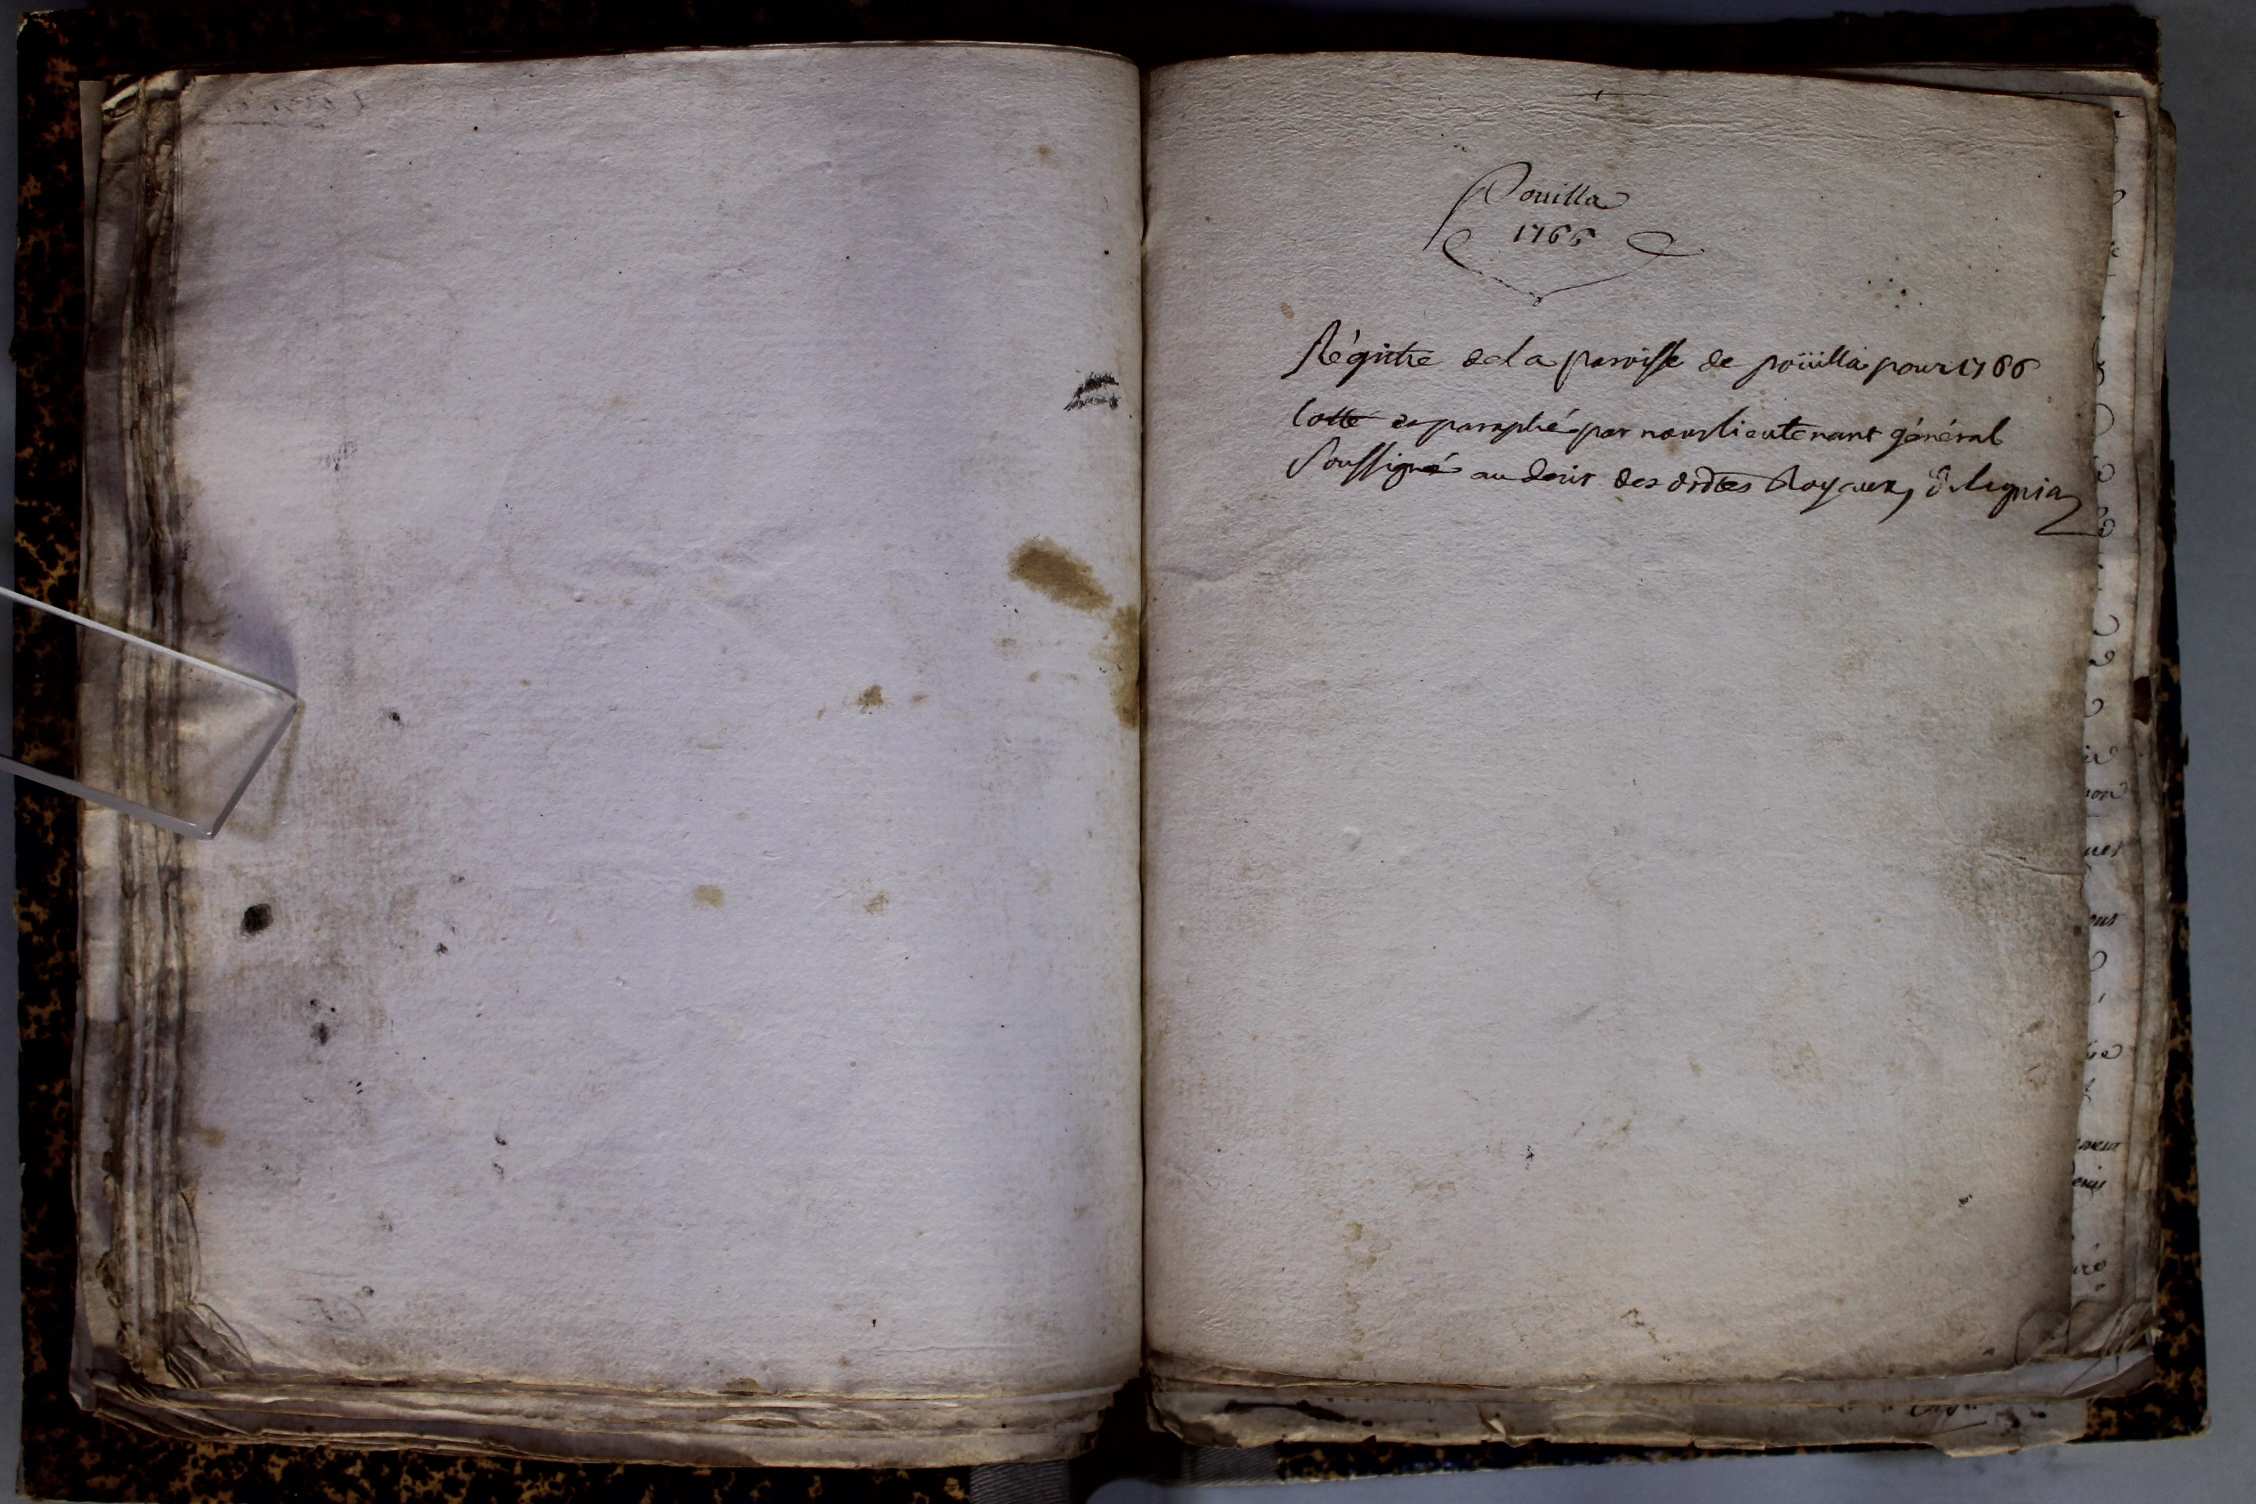 Pouilla
1766
Régistre de la paroisse de poüilla pour 1766
Cotté et paraphé par nous lieutenant général
Soussigné au desir des ordres Royaux,